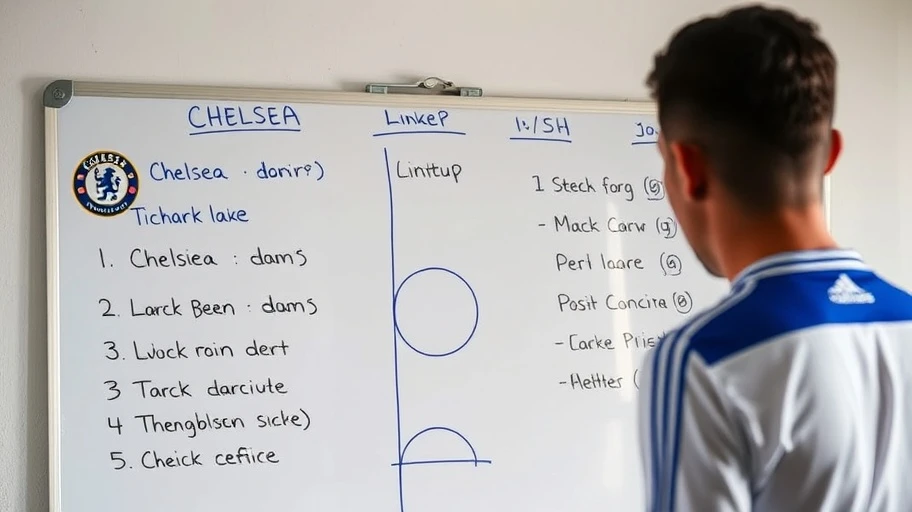 CHELSEA
LinkeP
1:/SH
Jo.
CHELSEA
Chelsea · dorir?)
Tichark lake
1. Chelsiea : dams
2. Larck Been : dams
3. Lvock roin dert
3 Tarck darciute
4 Thengblscn sicke)
5. Cheick cefice
Linttup
1 Stech forg (g)
- Mack Carw (g)
Pert loare (G)
Posit Concira (8)
- Carke Plis
- Hetter (
adidas